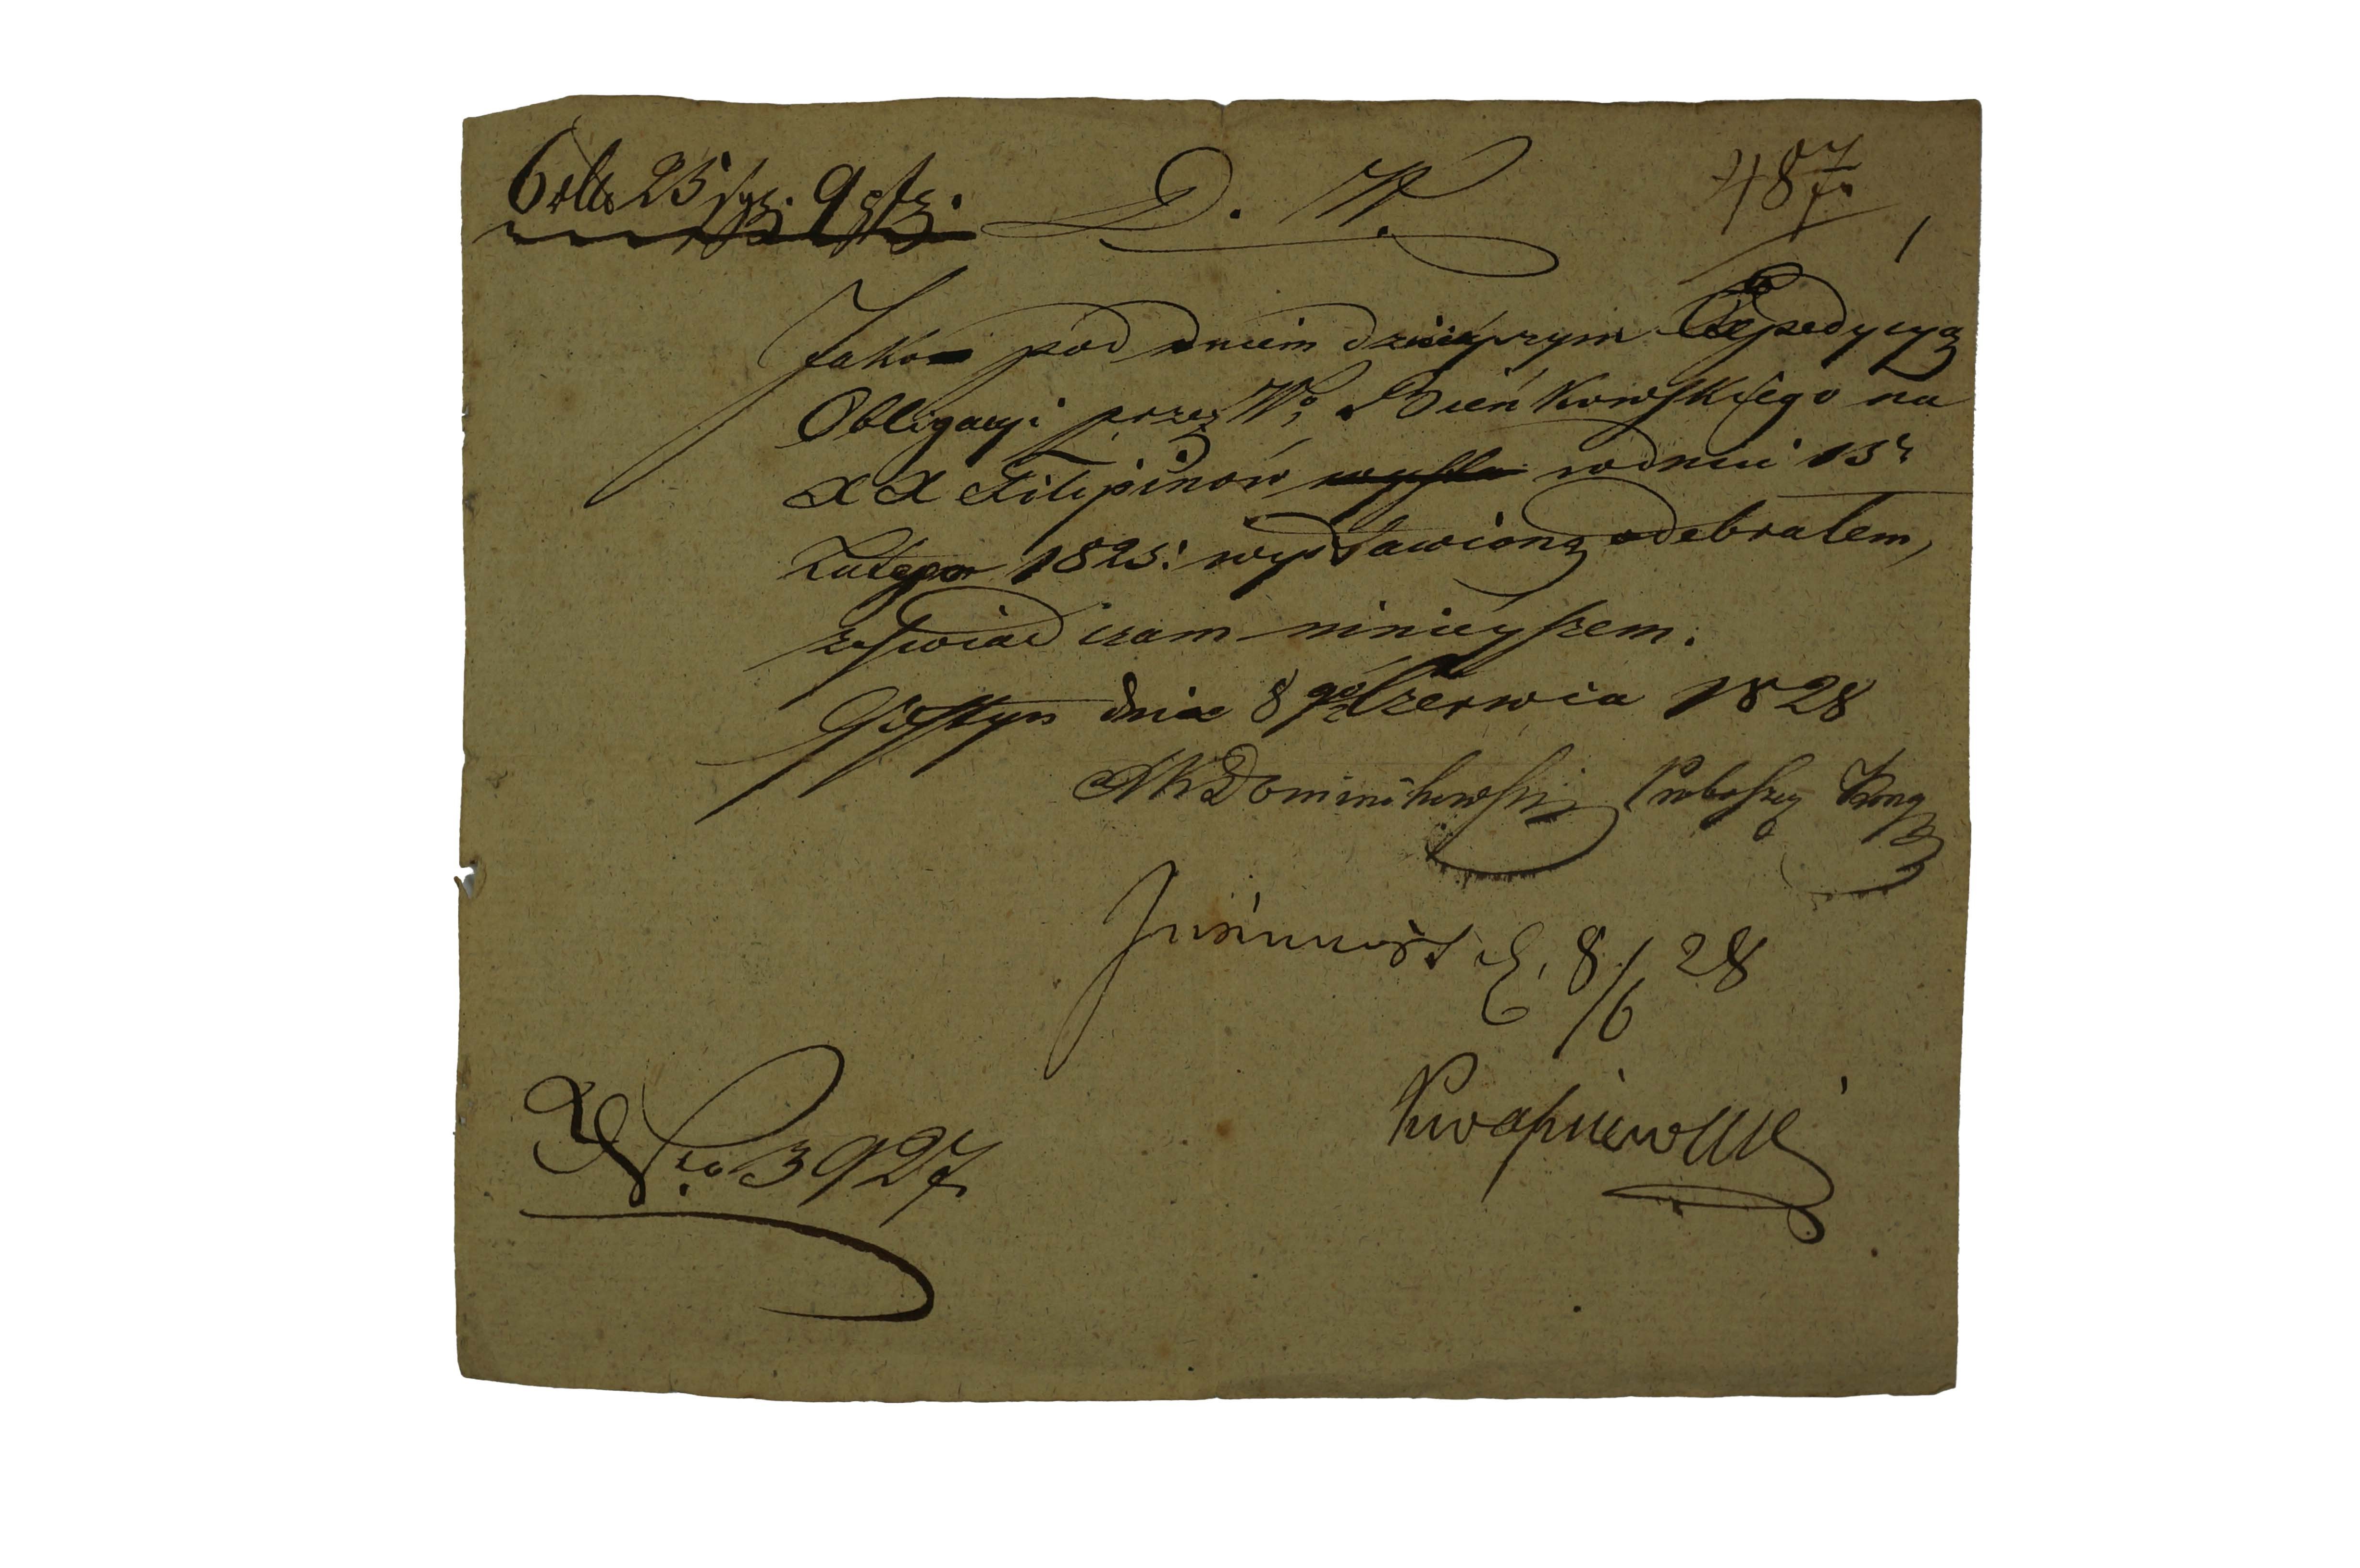 6 rtlr 25 sgr. 9 pf.
D. W.
487
Jako pod dniem dzisieyszym Expedycyą
Obligacyi przez W. Bieńkowskiego na
XX Filipinów w dniu 15
Lutego 1825: wystawioną odebrałem,
zaświadczam ninieyszem.
Gostyn dnia 8go Czerwca 1828
Dominikowski Proboszcz Kong
8/6 28
Kwaśniewski
Nro 3927